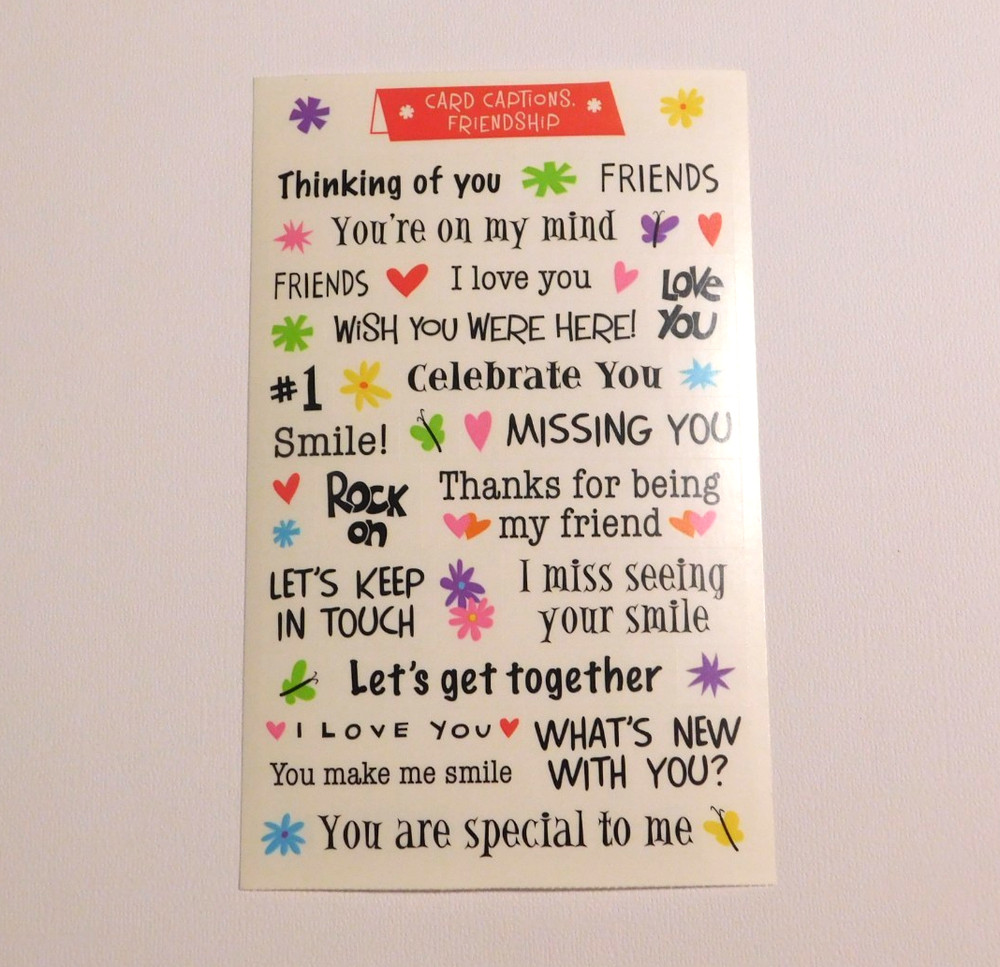 CARD CAPTIONS.
FRIENDSHIP
Thinking of you
FRIENDS
You're on my mind
FRIENDS
I love you
LOVE
YOU
WiSH YOU WERE HERE!
#1
Celebrate You
Smile!
MISSING YOU
ROCK
on
Thanks for being
my friend
LET'S KEEP
IN TOUCH
I miss seeing
your smile
Let's get together
I LOVE YOU
WHAT'S NEW
WITH YOU?
You make me smile
You are special to me